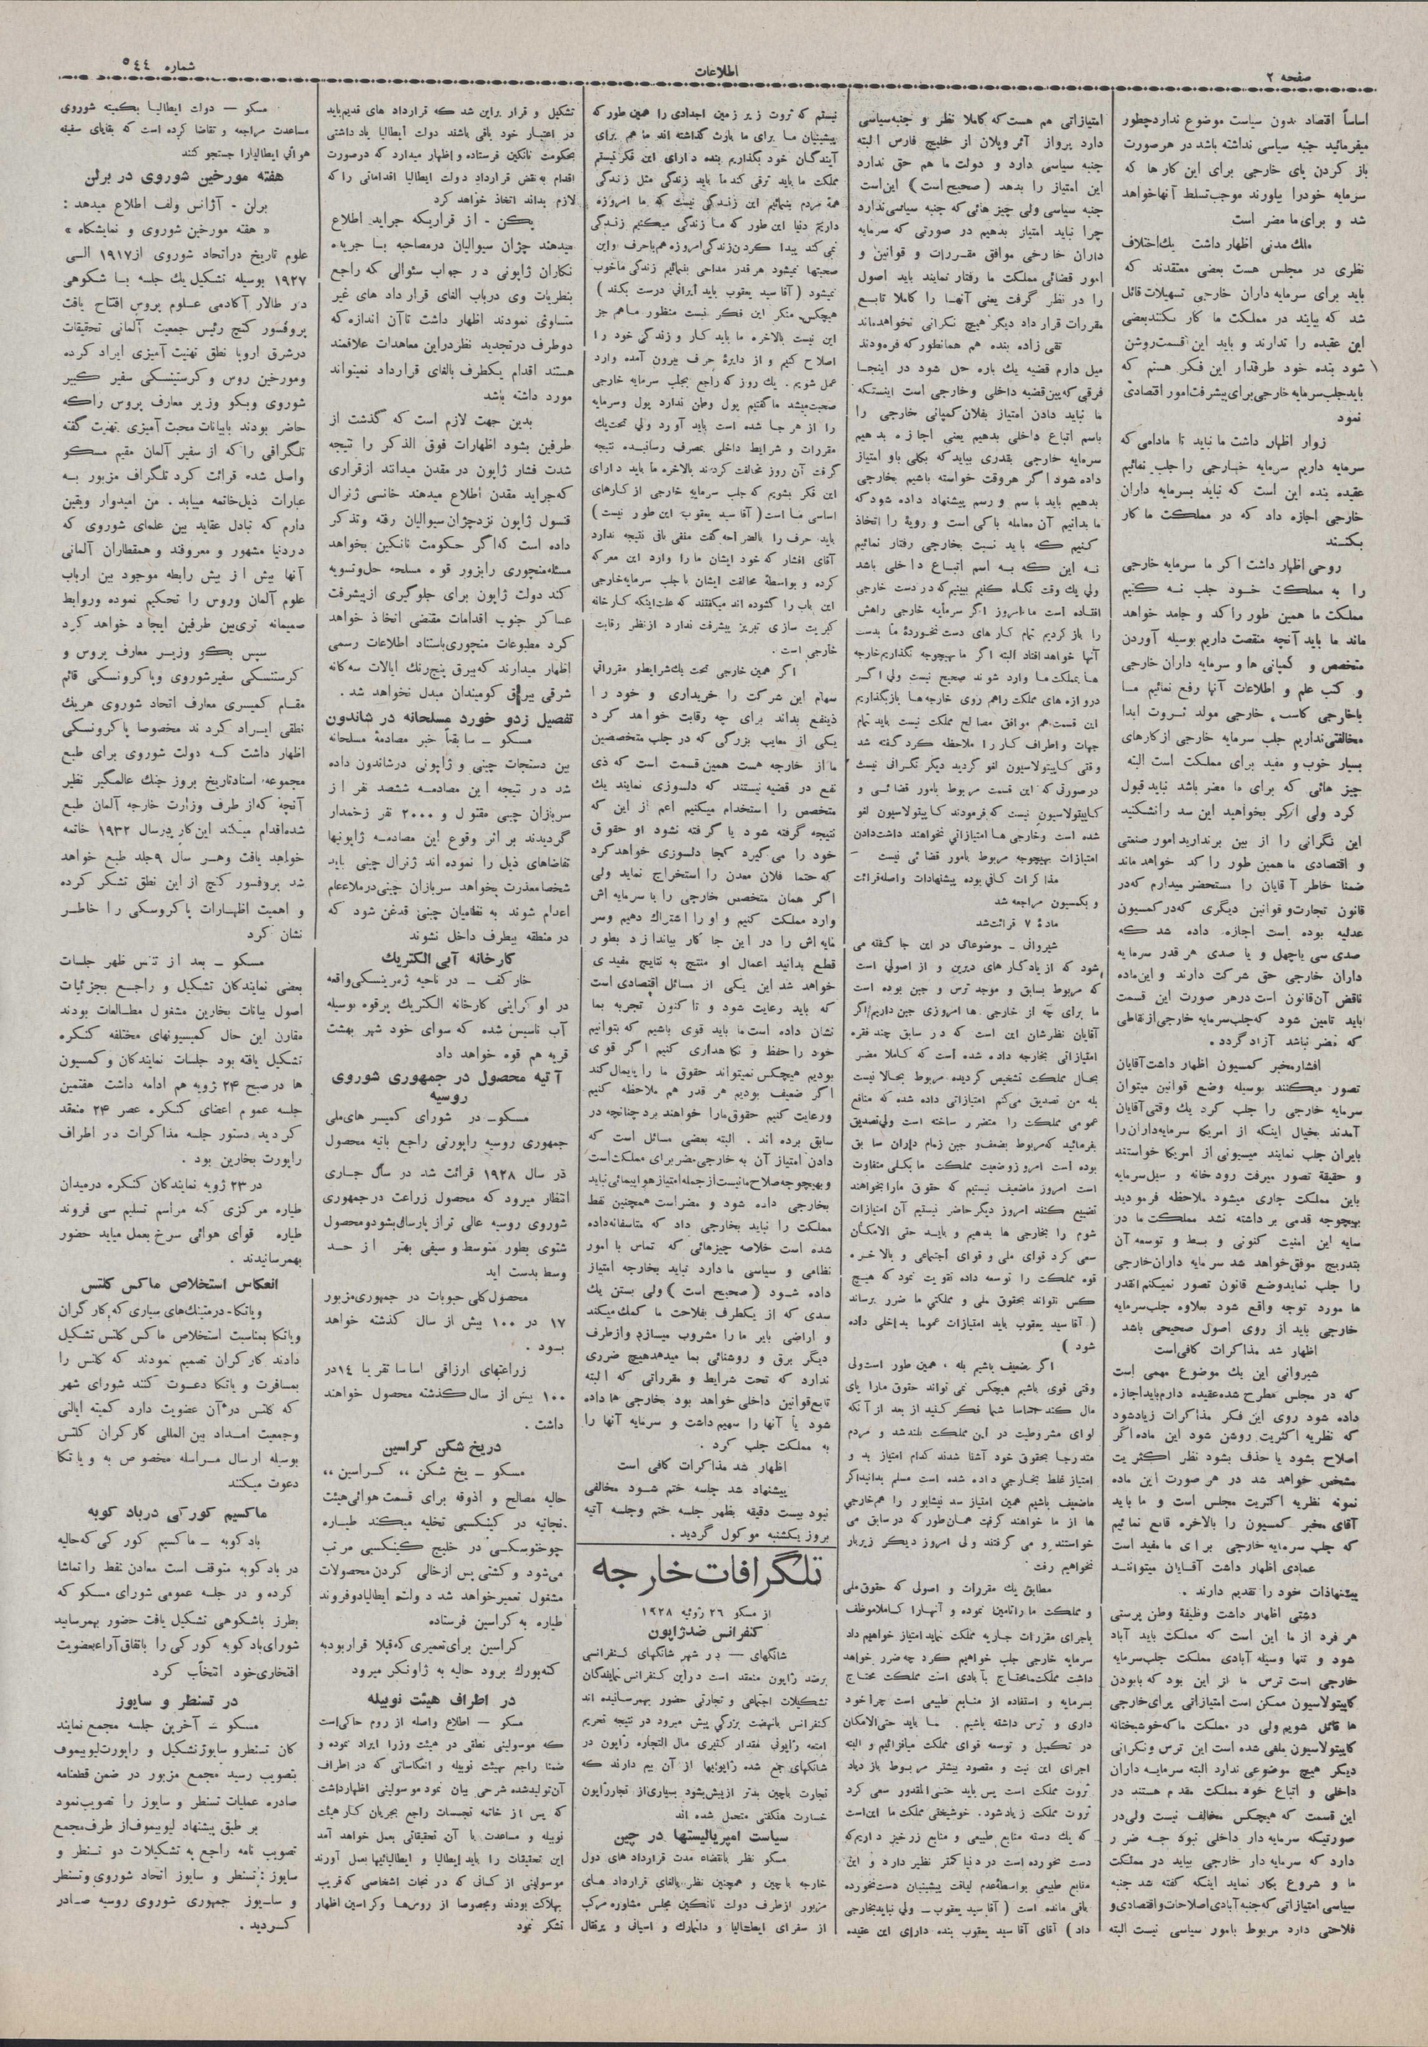 صفحه ۲
اطلاعات
شماره ۵۴۴
اساساً اقتصاد بدون سیاست موضوع ندارد چطور
میفرمائید جنبه سیاسی نداشته باشد در هر صورت
باز کردن پای خارجی برای این کار ها که
سرمایه خودرا بیاورند موجب تسلط آنها خواهد
شد و برای ما مضر است
ملك مدنی اظهار داشت یك اختلاف
نظری در مجلس هست بعضی معتقدند که
باید برای سرمایه داران خارجی تسهیلات قائل
شد که بیایند در مملکت ما کار بکنند بعضی
این عقیده را ندارند و باید این قسمت روشن
شود بنده خود طرفدار این فکر هستم که
باید جلب سرمایه خارجی برای پیشرفت امور اقتصادی
نمود
زوار اظهار داشت ما نباید تا مادامی که
سرمایه داریم سرمایه خارجی را جلب نمائیم
عقیده بنده این است که نباید بسرمایه داران
خارجی اجازه داد که در مملکت ما کار
بکنند
روحی اظهار داشت اگر ما سرمایه خارجی
را به مملکت خود جلب نه کنیم
مملکت ما همین طور راکد و جامد خواهد
ماند ما باید آنچه منقصت داریم بوسیله آوردن
متخصص و کمپانی ها و سرمایه داران خارجی
و کسب علم و اطلاعات آنها رفع نمائیم ما
باخارجی کاسب، خارجی مولد ثروت ابدا
مخالفتی نداریم جلب سرمایه خارجی از کارهای
بسیار خوب و مفید برای مملکت است البته
چیز هائی که برای ما مضر باشد نباید قبول
کرد ولی اگر بخواهید این سد را نشکنید
این نگرانی را از بین بر ندارید امور صنعتی
و اقتصادی ما همین طور را کد خواهد ماند
ضمنا خاطر آقایان را مستحضر میدارم که در
قانون تجارت و قوانین دیگری که در کمسیون
عدلیه بوده است اجازه داده شد که
صدی سی یا چهل و یا صدی هر قدر سرمایه
داران خارجی حق شرکت دارند و این ماده
ناقض آن قانون است در هر صورت این قسمت
باید تامین شود که جلب سرمایه خارجی از نقاطی
که مضر نباشد آزاد گردد .
افشار مخبر کمسیون اظهار داشت آقایان
تصور میکنند بوسیله وضع قوانین میتوان
سرمایه خارجی را جلب کرد یك وقتی آقایان
آمدند بخیال اینکه از امریکا سرمایه داران را
بایران جلب نمایند میسیونی از امریکا خواستند
و حقیقة تصور میرفت رود خانه و سیل سرمایه
باین مملکت جاری میشود ملاحظه فرمودید
بهیچوجه قدمی بر داشته نشد مملکت ما در
سایه این امنیت کنونی و بسط و توسعه آن
بتدریج موفق خواهد شد سرمایه داران خارجی
را جلب نماید وضع قانون تصور نمیکنم انقدر
ها مورد توجه واقع شود بعلاوه جلب سرمایه
خارجی باید از روی اصول صحیحی باشد
اظهار شد مذاکرات کافی است
شیروانی این یك موضوع مهمی است
که در مجلس مطرح شده عقیده دارم باید اجازه
داده شود روی این فکر مذاکرات زیاد شود
که نظریه اکثریت روشن شود این ماده اگر
اصلاح بشود یا حذف بشود نظر اکثریت
مشخص خواهد شد در هر صورت این ماده
نمونه نظریه اکثریت مجلس است و ما باید
آقای مخبر کمسیون را بالاخره قانع نمائیم
که جلب سرمایه خارجی برای ما مفید است
عمادی اظهار داشت آقایان میتوانند
پیشنهادات خود را تقدیم دارند .
دشتی اظهار داشت وظیفهٔ وطن پرستی
هر فرد از ما این است که مملکت باید آباد
شود و تنها وسیله آبادی مملکت جلب سرمایه
خارجی است ترس ما از این بود که با بودن
کاپیتولاسیون ممکن است امتیازاتی برای خارجی
ها قائل شویم ولی در مملکت ما که خوشبختانه
کاپیتولاسیون ملغی شده است این ترس و نگرانی
دیگر هیچ موضوعی ندارد البته سرمایه داران
داخلی و اتباع خود مملکت مقدم هستند در
این قسمت که هیچکس مخالف نیست ولی در
صورتیکه سرمایه دار داخلی نبود چه ضرر
دارد که سرمایه دار خارجی بیاید در مملکت
ما و شروع بکار نماید اینکه گفته شد جنبه
سیاسی امتیازاتی که جنبه آبادی اصلاحات واقتصادی و
فلاحتی دارد مربوط بامور سیاسی نیست البته
امتیازاتی هم هست که کاملا نظر و جنبه سیاسی
دارد پرواز آئر وپلان از خلیج فارس البته
جنبه سیاسی دارد و دولت ما هم حق ندارد
این امتیاز را بدهد ( صحیح است ) این است
جنبه سیاسی ولی چیز هائی که جنبه سیاسی ندارد
چرا نباید امتیاز بدهیم در صورتی که سرمایه
داران خارجی موافق مقررات و قوانین و
امور قضائی مملکت ما رفتار نمایند باید اصول
را در نظر گرفت یعنی آنها را کاملا تابع
مقررات قرار داد دیگر هیچ نگرانی نخواهد ماند
تقی زاده بنده هم همانطور که فرمودند
میل دارم قضیه یك باره حل شود در اینجا
فرقی که بین قضیه داخلی وخارجی است اینستکه
ما نباید دادن امتیاز بفلان کمپانی خارجی را
باسم اتباع داخلی بدهیم یعنی اجازه بدهیم
سرمایه خارجی بقدری بیاید که بکلی باو امتیاز
داده شود اگر هر وقت خواسته باشیم بخارجی
بدهیم باید با سم و رسم پیشنهاد داده شود که
ما بدانیم آن معامله با کی است و رویهٔ را اتخاذ
کنیم که باید نسبت بخارجی رفتار نمائیم
نه این که به اسم اتباع داخلی باشد
ولی یك وقت نگاه کنیم ببینیم که در دست خارجی
افتاده است ما امروز اگر سرمایه خارجی راهش
را باز کردیم تمام کار های دست نخوردهٔ ما بدست
آنها خواهد افتاد البته اگر ما بهیچوجه نگذاریم خارجه
ها بمملکت ما وارد شوند صحیح نیست ولی اگر
دروازه های مملکت راهم روی خارجه ها باز بگذاریم
این قسمت هم موافق مصالح مملکت نیست باید تمام
جهات واطراف کار را ملاحظه کرد گفته شد
وقتی کاپیتولاسیون لغو گردید دیگر نگرانی نیست
در صورتی که این قسمت مربوط بامور قضائی و
کاپیتولاسیون نیست که فرمودند کاپیتولاسیون لغو
شده است وخارجی ها امتیازاتی نخواهند داشت دادن
امتیازات بهیچوجه مربوط بامور قضائی نیست
مذاکرات کافی بوده پیشنهادات واصله قرائت
و بکمسیون مراجعه شد
مادهٔ ۷ قرائت شد
شیروانی - موضوعاتی در این جا گفته می
شود که از یادگار های دیرین و از اصولی است
که مربوط بسابق و موجد ترس و جبن بوده است
ما برای چه از خارجی ها امروزی جبن داریم اگر
آقایان نظرشان این است که در سابق چند فقره
امتیازاتی بخارجه داده شده است که کاملا مضر
بحال مملکت تشخیص گردیده مربوط بحالا نیست
بله من تصدیق می‌کنم امتیازاتی داده شده که منافع
عمومی مملکت را متضرر ساخته است ولی تصدیق
بفرمائید که مربوط بضعف و جبن زمام داران سابق
بوده است امروز وضعیت مملکت ما بکلی متفاوت
است امروز ما ضعیف نیستیم که حقوق مارا بخواهند
تضییع کنند امروز دیگر حاضر نیستیم آن امتیازات
شوم را بخارجی ها بدهیم و باید حتی الامکان
سعی کرد قوای ملی و قوای اجتماعی و بالاخره
قوه مملکت را توسعه داده تقویت نمود که هیچ
کس نتواند بحقوق ملی و مملکتی ما ضرر برساند
( آقا سید یعقوب باید امتیازات عموما بداخلی داده
شود )
اگر بضعیف باشیم بله ، همین طور است ولی
وقتی قوی باشیم هیچکس نمی تواند حقوق مارا پای
مال کند حتما شما فکر کنید از بعد از آنکه
لوای مشروطیت در این مملکت بلند شد و مردم
متدرجا بحقوق خود آشنا شدند کدام امتیاز بد و
امتیاز غلط بخارجی داده شده است مسلم بدانید اگر
ما ضعیف باشیم همین امتیاز سد نیشابور را هم خارجی
ها از ما خواهند گرفت همان طور که در سابق می
خواستند و می گرفتند ولی امروز دیگر زیر بار
نخواهیم رفت
مطابق یك مقررات و اصولی که حقوق ملی
و مملکت ما را تامین نموده و آنها را کاملا موظف
باجرای مقررات جاریه مملکت نماید امتیاز خواهیم داد
سرمایه خارجی جلب خواهیم کرد چه ضرر خواهد
داشت مملکت ما محتاج بآبادی است مملکت محتاج
بسرمایه و استفاده از منابع طبیعی است چرا خود
داری و ترس داشته باشیم . ما باید حتی الامکان
در تکمیل و توسعه قوای مملکت میافزائیم و البته
اجرای این نیت و مقصود بیشتر مربوط باز دیاد
ثروت مملکت است پس باید حتی المقدور سعی کرد
ثروت مملکت زیاد شود . خوشبختی مملکت ما این است
که یك دسته منابع طبیعی و منابع زرخیز داریم که
دست نخورده است در دنیا کمتر نظیر دارد و این
منابع طبیعی بواسطهٔ عدم لیاقت پیشینیان دست نخورده
باقی مانده است ( آقا سید یعقوب ــ ولی نباید بخارجی
داد ) آقای آقا سید یعقوب بنده دارای این عقیده
نیستم که ثروت زیر زمین اجدادی را همین طور که
پیشینیان ما برای ما بارث گذاشته اند ما هم برای
آیندگان خود بگذاریم بنده دارای این فکر نیستم
مملکت ما باید ترقی کند ما باید زندگی مثل زندگی
همهٔ مردم بنمائیم این زندگی نیست که ما امروزه
داریم دنیا این طور که ما زندگی میکنیم زندگی
نمی کند پیدا کردن زندگی امروزه هم با حرف و این
صحبتها نمیشود هر قدر مداحی بنمائیم زندگی ما خوب
نمیشود ( آقا سید یعقوب باید ایرانی درست بکند )
هیچکس منکر این فکر نیست منظور ما هم جز
این نیست بالاخره ما باید کار و زندگی خود را
اصلاح کنیم و از دایرهٔ حرف بیرون آمده وارد
عمل شویم . یك روز که راجع بجلب سرمایه خارجی
صحبت میشد ما گفتیم پول وطن ندارد پول وسرمایه
را از هر جا شده است باید آورد ولی تحت یك
مقررات و شرایط داخلی بمصرف رسانیده نتیجه
گرفت آن روز مخالفت کردند بالاخره ما باید دارای
این فکر بشویم که جلب سرمایه خارجی از کارهای
اساسی ما است ( آقا سید یعقوب این طور نیست )
باید حرف را بالصراحه گفت منفی بافی نتیجه ندارد
آقای افشار که خود ایشان ما را وارد این معرکه
کرده و بواسطهٔ مخالفت ایشان با جلب سرمایه خارجی
این باب را گشوده اند میگفتند که علت اینکه کارخانه
کبریت سازی تبریز پیشرفت ندارد از نظر رقابت
خارجی است .
اگر همین خارجی تحت یك شرایط و مقرراتی
سهام این شرکت را خریداری و خود را
ذینفع بداند برای چه رقابت خواهد کرد
یکی از معایب بزرگی که در جلب متخصصین
ما از خارجه هست همین قسمت است که ذی
نفع در قضیه نیستند که دلسوزی نمایند یك
متخصص را استخدام میکنیم اعم از این که
نتیجه گرفته شود یا گرفته نشود او حقوق
خود را می گیرد کجا دلسوزی خواهد کرد
که حتما فلان معدن را استخراج نماید ولی
اگر همان متخصص خارجی را با سرمایه اش
وارد مملکت کنیم و او را اشتراك دهیم وسر
مایه اش را در این جا کار بیاندازد بطور
قطع بدانید اعمال او منتج به نتایج مفیدی
خواهد شد این یکی از مسائل اقتصادی است
که باید رعایت شود و تا کنون تجربه بما
نشان داده است ما باید قوی باشیم که بتوانیم
خود را حفظ و نگاهداری کنیم اگر قوی
بودیم هیچکس نمیتواند حقوق ما را پایمال کند
اگر ضعیف بودیم هر قدر هم ملاحظه کنیم
و رعایت کنیم حقوق مارا خواهند برد چنانچه در
سابق برده اند . البته بعضی مسائل است که
دادن امتیاز آن به خارجی مضر برای مملکت است
و بهیچوجه صلاح ما نیست از جمله امتیاز هواپیمائی نباید
بخارجی داده شود و مضر است همچنین نفط
مملکت را نباید بخارجی داد که متاسفانه داده
شده است خلاصه چیزهائی که تماس با امور
نظامی و سیاسی ما دارد نباید بخارجه امتیاز
داده شود ( صحیح است ) ولی بستن یك
سدی که از یکطرف بفلاحت ما کمك میکند
و اراضی بایر ما را مشروب میسازد و از طرف
دیگر برق و روشنائی بما میدهد هیچ ضرری
ندارد که تحت شرایط و مقرراتی که البته
تابع قوانین داخلی خواهد بود بخارجی ها داده
شود یا آنها را سهیم داشت و سرمایه آنها را
به مملکت جلب کرد .
اظهار شد مذاکرات کافی است
پیشنهاد شد جلسه ختم شود مخالفی
نبود بیست دقیقه بظهر جلسه ختم وجلسه آتیه
بروز یکشنبه موکول گردید .
تلگرافات خارجه
از مسکو ۲۶ ژوئیه ۱۹۲۸
کنفرانس ضدژاپون
شانگهای — در شهر شانگهای کنفرانسی
برضد ژاپون منعقد است در این کنفرانس نمایندگان
تشکیلات اجتماعی و تجارتی حضور بهمرسانیده اند
کنفرانس بانهضت بزرگی پیش میرود در نتیجه تحریم
امتعه ژاپونی مقدار کثیری مال التجاره ژاپون در
شانگهای جمع شده ژاپونیها از آن بیم دارند که
تجارت باچین بدتر از پیش بشود بسیاری از تجار ژاپون
خسارت هنگفتی متحمل شده اند
سیاست امپریالیستها در چین
مسکو نظر بانقضاء مدت قرارداد های دول
خارجه با چین و همچنین نظر بالغای قرارداد های
مزبور از طرف دولت نانکین مجلس مشاوره مرکب
از سفرای ایطالیا و دانمارك و اسپانی و پرتقال
تشکیل و قرار براین شد که قرارداد های قدیم باید
در اعتبار خود باقی باشند دولت ایطالیا یادداشتی
بحکومت نانکین فرستاده و اظهار میدارد که درصورت
اقدام به نقض قرارداد دولت ایطالیا اقداماتی را که
لازم بداند اتخاذ خواهد کرد
پکن - از قراریکه جراید اطلاع
میدهند چژان سیولیان درمصاحبه با جریده
نگاران ژاپونی در جواب سئوالی که راجع
بنظریات وی درباب الغای قرارداد های غیر
متساوی نمودند اظهار داشت تاآن اندازه که
دوطرف در تجدید نظر در این معاهدات علاقمند
هستند اقدام یکطرف بالغای قرارداد نمیتواند
مورد داشته باشد
بدین جهت لازم است که گذشت از
طرفین بشود اظهارات فوق الذکر را نتیجه
شدت فشار ژاپون در مقدن میدانند از قراری
که جراید مقدن اطلاع میدهند خانسی ژنرال
قنسول ژاپون نزد چژان سیولیان رفته وتذکر
داده است که اگر حکومت نانکین بخواهد
مسئله منچوری را بزور قوه مسلحه حل و تسویه
کند دولت ژاپون برای جلوگیری از پیشرفت
عساکر جنوب اقدامات مقتضی اتخاذ خواهد
کرد مطبوعات منچوری باستناد اطلاعات رسمی
اظهار میدارند که بیرق پنج رنك ایالات سه گانه
شرقی بیرق کومیندان مبدل نخواهد شد .
تفصیل زدو خورد مسلحانه در شاندون
مسکو ــ سابقاً خبر مصادمهٔ مسلحانه
بین دستجات چینی و ژاپونی در شاندون داده
شد در نتیجه این مصادمه ششصد نفر از
سربازان چینی مقتول و ۲۰۰۰ نفر زخمدار
گردیدند بر اثر وقوع این مصادمه ژاپونیها
تقاضاهای ذیل را نموده اند ژنرال چینی باید
شخصا معذرت بخواهد سربازان چینی درملاءعام
اعدام شوند به نظامیان چینی قدغن شود که
در منطقه بیطرف داخل نشوند
کارخانه آبی الکتریك
خارکف - در ناحیه ژمرینسکی واقعه
در او کراینی کارخانه الکتریك پرقوه بوسیله
آب تاسیس شده که سوای خود شهر بهشت
قریه هم قوه خواهد داد
آتیه محصول در جمهوری شوروی
روسیه
مسکو- در شورای کمیسر های ملی
جمهوری روسیه راپورتی راجع بآتیه محصول
در سال ۱۹۲۸ قرائت شد در سال جاری
انتظار میرود که محصول زراعت در جمهوری
شوروی روسیه عالی تر از پارسال بشود و محصول
شتوی بطور متوسط و سیفی بهتر از حد
وسط بدست آید
محصول کلی حبوبات در جمهوری مزبور
۱۷ در ۱۰۰ بیش از سال گذشته خواهد
بود .
زراعتهای ارزاقی اساسا تقریبا ۱۴ در
۱۰۰ بیش از سال گذشته محصول خواهند
داشت .
دریخ شکن کراسین
مسکو ــ یخ شکن ،، کراسین ،،
حالیه مصالح و آذوقه برای قسمت هوائی هیئت
نجاتیه در کینکسبی تخلیه میکند طیاره
چوخنوسکی در خلیج کینکسبی مرتب
می‌شود و کشتی پس از خالی کردن محصولات
مشغول تعمیر خواهد شد دولت ایطالیا دو فروند
طیاره به کراسین فرستاده
کراسین برای تعمیری که قبلا قرار بود به
کنه بورك برود حالیه به ژاونکر میرود
در اطراف هیئت نوبیله
مسکو - اطلاع واصله از روم حاکی است
که موسولینی نطقی در هیئت وزرا ایراد نموده و
ضمنا راجع بهیئت نوبیله و انعکاساتی که در اطراف
آن تولید شده شرحی بیان نمود موسولینی اظهار داشت
که پس از خاتمه تجسسات راجع بجریان کار هیئت
نوبیله و مساعدت با آن تحقیقاتی بعمل خواهد آمد
این تحقیقات را باید ایطالیا و ایطالیائیها بعمل آورند
موسولینی از کسانی که در نجات اشخاصی که قریب
بهلاکت بودند و بخصوصا از روسها و کراسین اظهار
تشکر نمود
مسکو — دولت ایطالیا بکمیته شوروی
مساعدت مراجعه و تقاضا کرده است که بقایای سفینه
هوائی ایطالیارا جستجو کنند
هفته مورخین شوروی در برلن
برلن - آژانس ولف اطلاع میدهد :
« هفته مورخین شوروی و نمایشگاه »
علوم تاریخ در اتحاد شوروی از ۱۹۱۷ الی
۱۹۲۷ بوسیله تشکیل یك جلسه با شکوهی
در طالار آکادمی علوم پروس افتتاح یافت
پروفسور کنچ رئیس جمعیت آلمانی تحقیقات
در شرق اروپا نطق تهنیت آمیزی ایراد کرده
ومورخین روس و کرستینسکی سفیر کبیر
شوروی وبکو وزیر معارف پروس راکه
حاضر بودند بابیانات محبت آمیزی تهنیت گفته
تلگرافی را که از سفیر آلمان مقیم مسکو
واصل شده قرائت کرد تلگراف مزبور به
عبارات ذیل خاتمه مییابد . من امیدوار ویقین
دارم که تبادل عقاید بین علمای شوروی که
در دنیا مشهور و معروفند و همقطاران آلمانی
آنها بیش از پیش رابطه موجود بین ارباب
علوم آلمان وروس را تحکیم نموده وروابط
صمیمانه تری بین طرفین ایجاد خواهد کرد
سپس بکو وزیر معارف پروس و
کرستنسکی سفیر شوروی و پاکرونسکی قائم
مقام کمیسری معارف اتحاد شوروی هریك
نطقی ایراد کردند مخصوصا پاکرونسکی
اظهار داشت که دولت شوروی برای طبع
مجموعه اسناد تاریخ بروز جنك عالمگیر نظیر
آنچه که از طرف وزارت خارجه آلمان طبع
شده اقدام میکند این کار در سال ۱۹۳۲ خاتمه
خواهد یافت وهر سال ۹ جلد طبع خواهد
شد پروفسور کنچ از این نطق تشکر کرده
و اهمیت اظهارات پاکروسکی را خاطر
نشان کرد
مسکو ــ بعد از تنفس ظهر جلسات
بعضی نمایندگان تشکیل و راجع بجزئیات
اصول بیانات بخارین مشغول مطالعات بودند
مقارن این حال کمیسیونهای مختلفه کنگره
تشکیل یافته بود جلسات نمایندگان و کمسیون
ها در صبح ۲۴ ژویه هم ادامه داشت هفتمین
جلسه عموم اعضای کنگره عصر ۲۴ منعقد
گردید. دستور جلسه مذاکرات در اطراف
راپورت بخارین بود .
در ۲۳ ژویه نمایندگان کنگره درمیدان
طیاره مرکزی که مراسم تسلیم سی فروند
طیاره قوای هوائی سرخ بعمل میاید حضور
بهمرسانیدند .
انعکاس استخلاص ماکس کلتس
ویاتکا - درمیتنك های سیاری که کارگران
ویاتکا بمناسبت استخلاص ماکس کلتس تشکیل
دادند کارگران تصمیم نمودند که کلتس را
بمسافرت و یاتکا دعوت کنند شورای شهر
که کلتس در آن عضویت دارد کمیته ایالتی
وجمعیت امداد بین المللی کارگران کلتس
بوسیله ارسال مراسله مخصوص به ویاتکا
دعوت میکنند
ماکسیم کورکی درباد کوبه
باد کوبه ــ ماکسیم کورکی که حالیه
در باد کوبه متوقف است معادن نفط را تماشا
کرده و در جلسه عمومی شورای مسکو که
بطرز باشکوهی تشکیل یافت حضور بهمرسانید
شورای باد کوبه کورکی را باتفاق آراء بعضویت
افتخاری خود انتخاب کرد
در تسنطر و سایوز
مسکو - آخرین جلسه مجمع نمایند
کان تسنطر و سایوز تشکیل و راپورت لیوبیموف
بتصویب رسید مجمع مزبور در ضمن قطعنامه
صادره عملیات تسنطر و سایوز را تصویب نمود
بر طبق پیشنهاد لیوبیموف از طرف مجمع
تصویب نامه راجع به تشکیلات دو تسنطر و
سایوز : تسنطر و سایوز اتحاد شوروی و تسنطر
و سایوز جمهوری شوروی روسیه صادر
گردید .